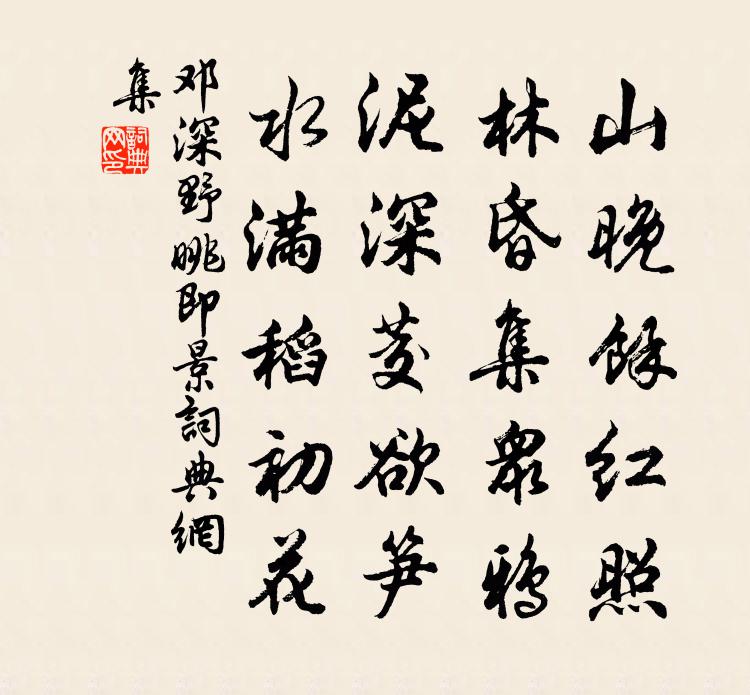 山晚餘红照
林昏集眾鸦
泥深茭欲笋
水满稻初花
邓深野眺即景詞典網
集
詞典
网印